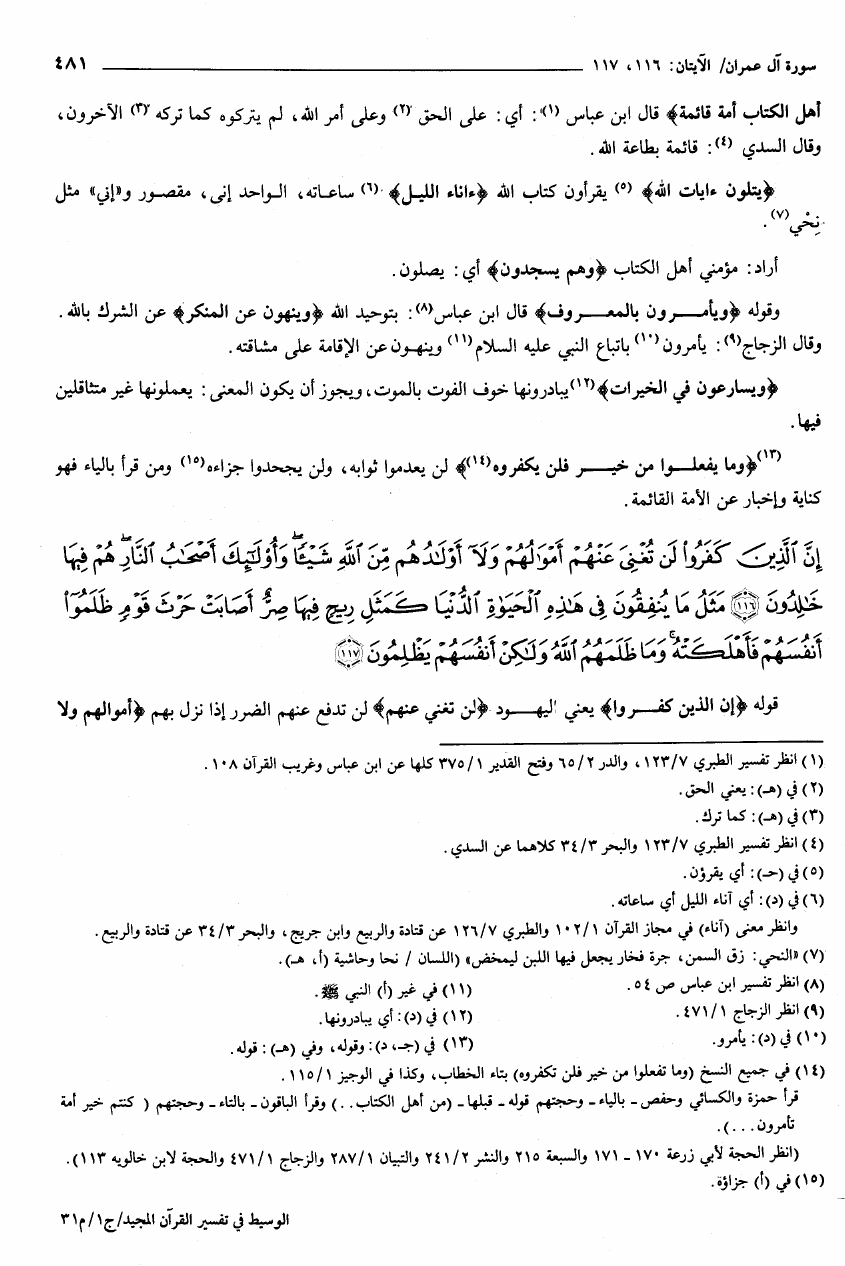 سورة آل عمران/ الآيتان: ١١٦، ١١٧ ٤٨١
أهل الكتاب أمة قائمة﴾ قال ابن عباس (١): أي: على الحق (٢) وعلى أمر الله، لم يتركوه كما تركه (٣) الآخرون،
وقال السدي (٤): قائمة بطاعة الله.
﴿يتلون ءايات الله﴾ (٥) يقرأون كتاب الله ﴿ءاناء الليل﴾ (٦) ساعاته، الواحد إنى، مقصور و«إني» مثل
نِحْي (٧).
أراد: مؤمني أهل الكتاب ﴿وهم يسجدون﴾ أي: يصلون.
وقوله ﴿ويأمرون بالمعروف﴾ قال ابن عباس (٨): بتوحيد الله ﴿وينهون عن المنكر﴾ عن الشرك بالله.
وقال الزجاج (٩): يأمرون (١٠) باتباع النبي عليه السلام (١١) وينهون عن الإقامة على مشاقته.
﴿ويسارعون في الخيرات﴾ (١٢) يبادرونها خوف الفوت بالموت، ويجوز أن يكون المعنى: يعملونها غير متثاقلين
فيها.
(١٣) ﴿وما يفعلوا من خير فلن يكفروه (١٤)﴾ لن يعدموا ثوابه، ولن يجحدوا جزاءه (١٥) ومن قرأ بالياء فهو
كناية وإخبار عن الأمة القائمة.
إِنَّ ٱلَّذِينَ كَفَرُواْ لَن تُغْنِىَ عَنْهُمْ أَمْوَٰلُهُمْ وَلَآ أَوْلَٰدُهُم مِّنَ ٱللَّهِ شَيْـًٔا ۖ وَأُوْلَٰٓئِكَ أَصْحَٰبُ ٱلنَّارِ ۚ هُمْ فِيهَا
خَٰلِدُونَ ﴿١١٦﴾ مَثَلُ مَا يُنفِقُونَ فِى هَٰذِهِ ٱلْحَيَوٰةِ ٱلدُّنْيَا كَمَثَلِ رِيحٍ فِيهَا صِرٌّ أَصَابَتْ حَرْثَ قَوْمٍ ظَلَمُوٓاْ
أَنفُسَهُمْ فَأَهْلَكَتْهُ ۚ وَمَا ظَلَمَهُمُ ٱللَّهُ وَلَٰكِنْ أَنفُسَهُمْ يَظْلِمُونَ ﴿١١٧﴾
قوله ﴿إن الذين كفروا﴾ يعني اليهود ﴿لن تغني عنهم﴾ لن تدفع عنهم الضرر إذا نزل بهم ﴿أموالهم ولا
(١) انظر تفسير الطبري ١٢٣/٧، والدر ٦٥/٢ وفتح القدير ٣٧٥/١ كلها عن ابن عباس وغريب القرآن ١٠٨.
(٢) في (هـ): يعني الحق.
(٣) في (هـ): كما ترك.
(٤) انظر تفسير الطبري ١٢٣/٧ والبحر ٣٤/٣ كلاهما عن السدي.
(٥) في (حـ): أي يقرؤن.
(٦) في (د): أي آناء الليل أي ساعاته.
وانظر معنى (آناء) في مجاز القرآن ١٠٢/١ والطبري ١٢٦/٧ عن قتادة والربيع وابن جريج، والبحر ٣٤/٣ عن قتادة والربيع.
(٧) «النحي: زق السمن، جرة فخار يجعل فيها اللبن ليمخض» (اللسان / نحا وحاشية (أ، هـ).
(٨) انظر تفسير ابن عباس ص ٥٤.
(٩) انظر الزجاج ٤٧١/١.
(١٠) في (د): يأمرو.
(١١) في غير (أ) النبي ﷺ.
(١٢) في (د): أي يبادرونها.
(١٣) في (جـ، د): وقوله، وفي (هـ): قوله.
(١٤) في جميع النسخ (وما تفعلوا من خير فلن تكفروه) بتاء الخطاب، وكذا في الوجيز ١١٥/١.
قرأ حمزة والكسائي وحفص ـ بالياء ـ وحجتهم قوله ـ قبلها ـ (من أهل الكتاب..) وقرأ الباقون ـ بالتاء ـ وحجتهم ( كنتم خير أمة
تأمرون...).
(انظر الحجة لأبي زرعة ١٧٠ ـ ١٧١ والسبعة ٢١٥ والنشر ٢٤١/٢ والتبيان ٢٨٧/١ والزجاج ٤٧١/١ والحجة لابن خالويه ١١٣).
(١٥) في (أ) جزاؤة.
الوسيط في تفسير القرآن المجيد/ج١/م٣١